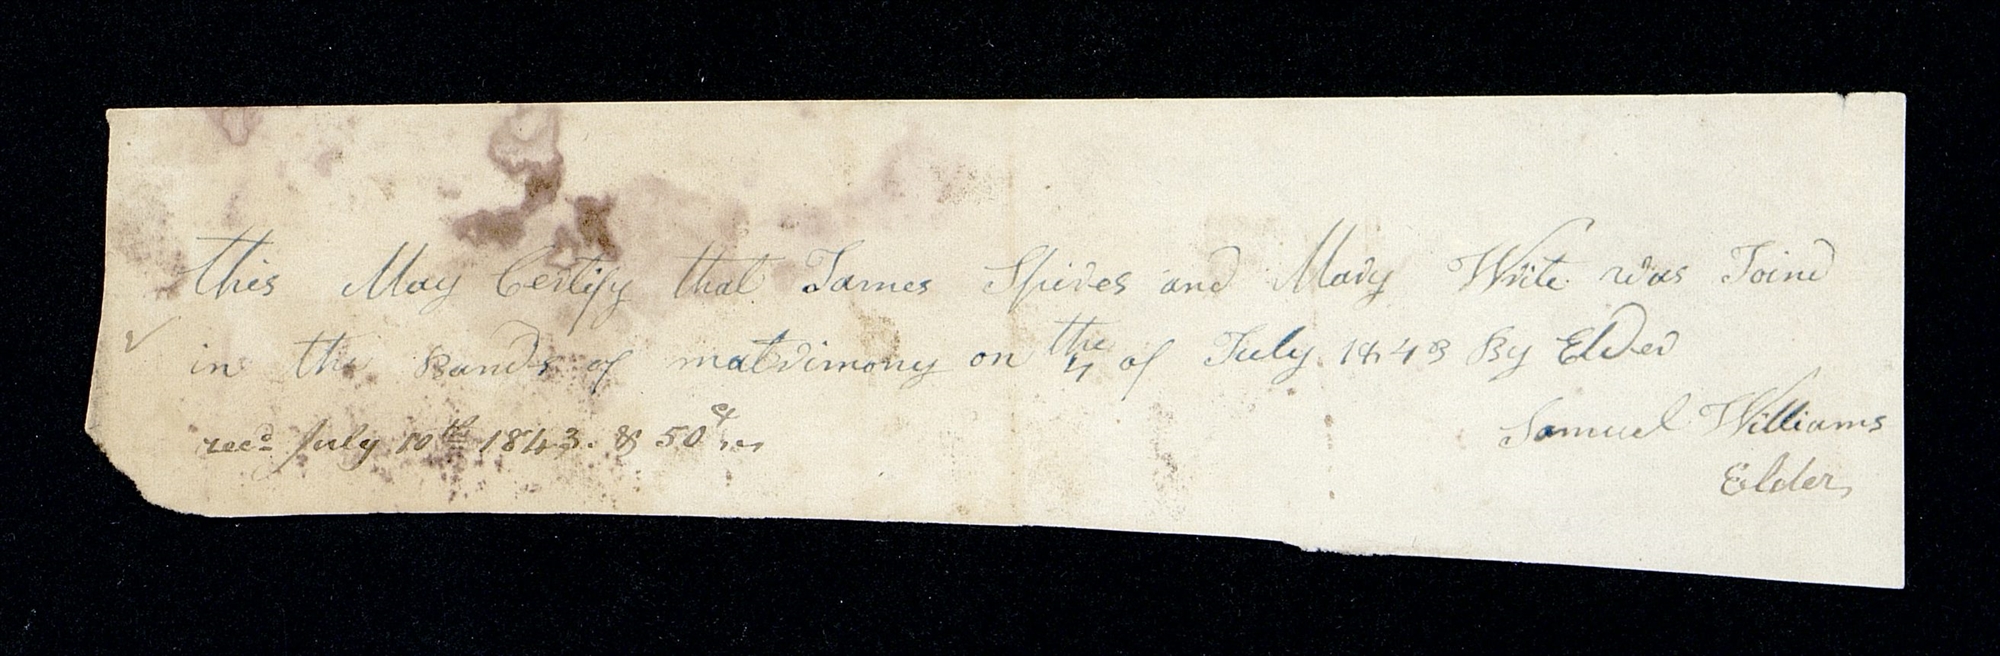 this May Certify that James Spires and Mary Write was Joind
in the Bands of matrimony on the 4 of July 1843 By Elder
Samuel Williams
Elder,
recd July 10th 1843. & 50